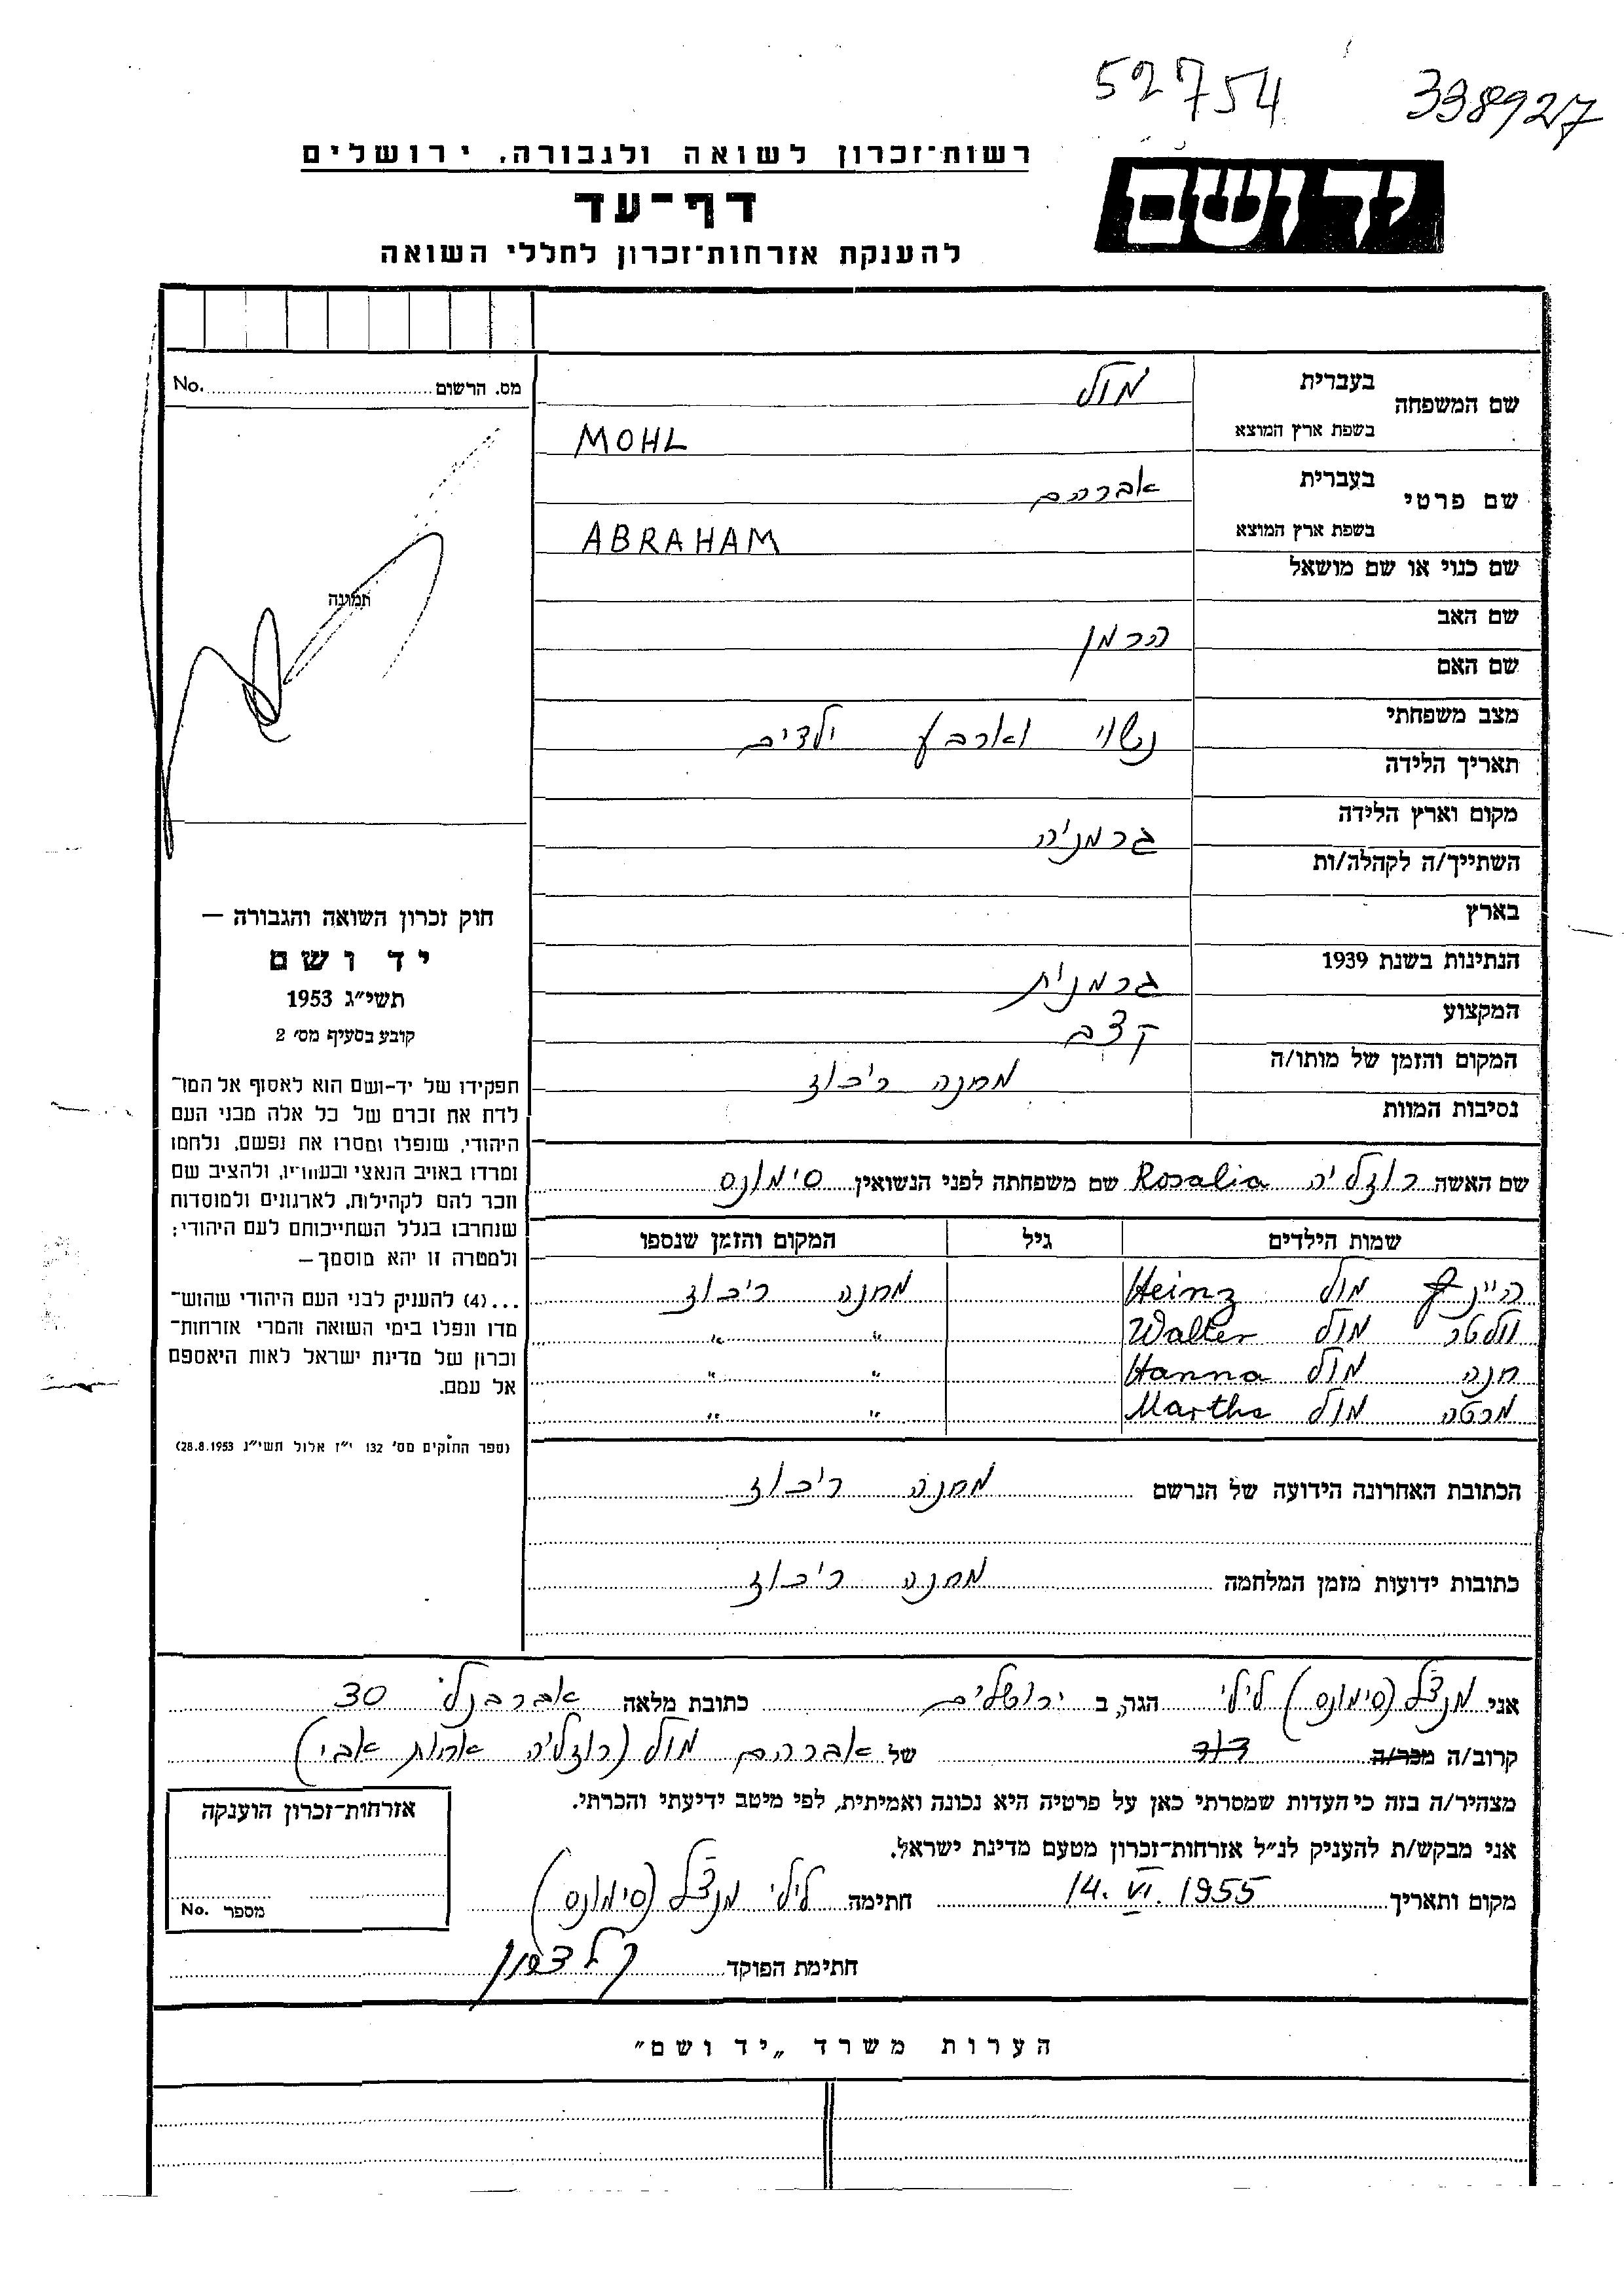 52754 338927
יד ושם
רשות־זכרון לשואה ולגבורה, ירושלים
דף־עד
להענקת אזרחות־זכרון לחללי השואה
מס. הרשום No.
תמונה
שם המשפחה בעברית מול
בשפת ארץ המוצא MOHL
שם פרטי בעברית אברהם
בשפת ארץ המוצא ABRAHAM
שם כנוי או שם מושאל
שם האב הרמן
שם האם
מצב משפחתי נשוי וארבע ילדים
תאריך הלידה
מקום וארץ הלידה גרמניה
השתייך/ה לקהלה/ות
בארץ
הנתינות בשנת 1939 גרמנית
המקצוע קצב
המקום והזמן של מותו/ה מחנה ריבוז
נסיבות המוות
שם האשה רוזליה Rosalia שם משפחתה לפני הנשואין סימונס
שמות הילדים גיל המקום והזמן שנספו
היינץ מול Heinz מחנה ריבוז
וולטר מול Walter " "
חנה מול Hanna " "
מרטה מול Martha " "
הכתובת האחרונה הידועה של הנרשם מחנה ריבוז
כתובות ידועות מזמן המלחמה מחנה ריבוז
חוק זכרון השואה והגבורה —
יד ושם
תשי״ג 1953
קובע בסעיף מס׳ 2
תפקידו של יד-ושם הוא לאסוף אל המו־
לדת את זכרם של כל אלה מבני העם
היהודי, שנפלו ומסרו את נפשם, נלחמו
ומרדו באויב הנאצי ובעוזריו, ולהציב שם
וזכר להם לקהילות, לארגונים ולמוסדות
שנחרבו בגלל השתייכותם לעם היהודי;
ולמטרה זו יהא מוסמך—
...(4) להעניק לבני העם היהודי שהוש־
מדו ונפלו בימי השואה והמרי אזרחות־
זכרון של מדינת ישראל לאות היאספם
אל עמם.
(ספר החוקים מס׳ 132 י״ז אלול תשי״ג 28.8.1953)
אני מנצל (סימונס) לילי הגר, ב ירושלים כתובת מלאה אברבנל 30
קרוב/ה מכר/ה דוד של אברהם מול (רוזליה אחות אבי)
מצהיר/ה בזה כי העדות שמסרתי כאן על פרטיה היא נכונה ואמיתית, לפי מיטב ידיעתי והכרתי.
אני מבקש/ת להעניק לנ״ל אזרחות־זכרון מטעם מדינת ישראל.
מקום ותאריך 14. VI. 1955 חתימה לילי מנצל (סימונס)
חתימת הפוקד
אזרחות־זכרון הוענקה
מספר No.
הערות משרד „יד ושם"